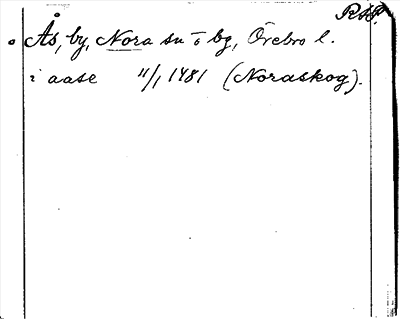 Ås, by, Nora sn o bg, Örebro l.
i aase 11/1 1481 (Noraskog).